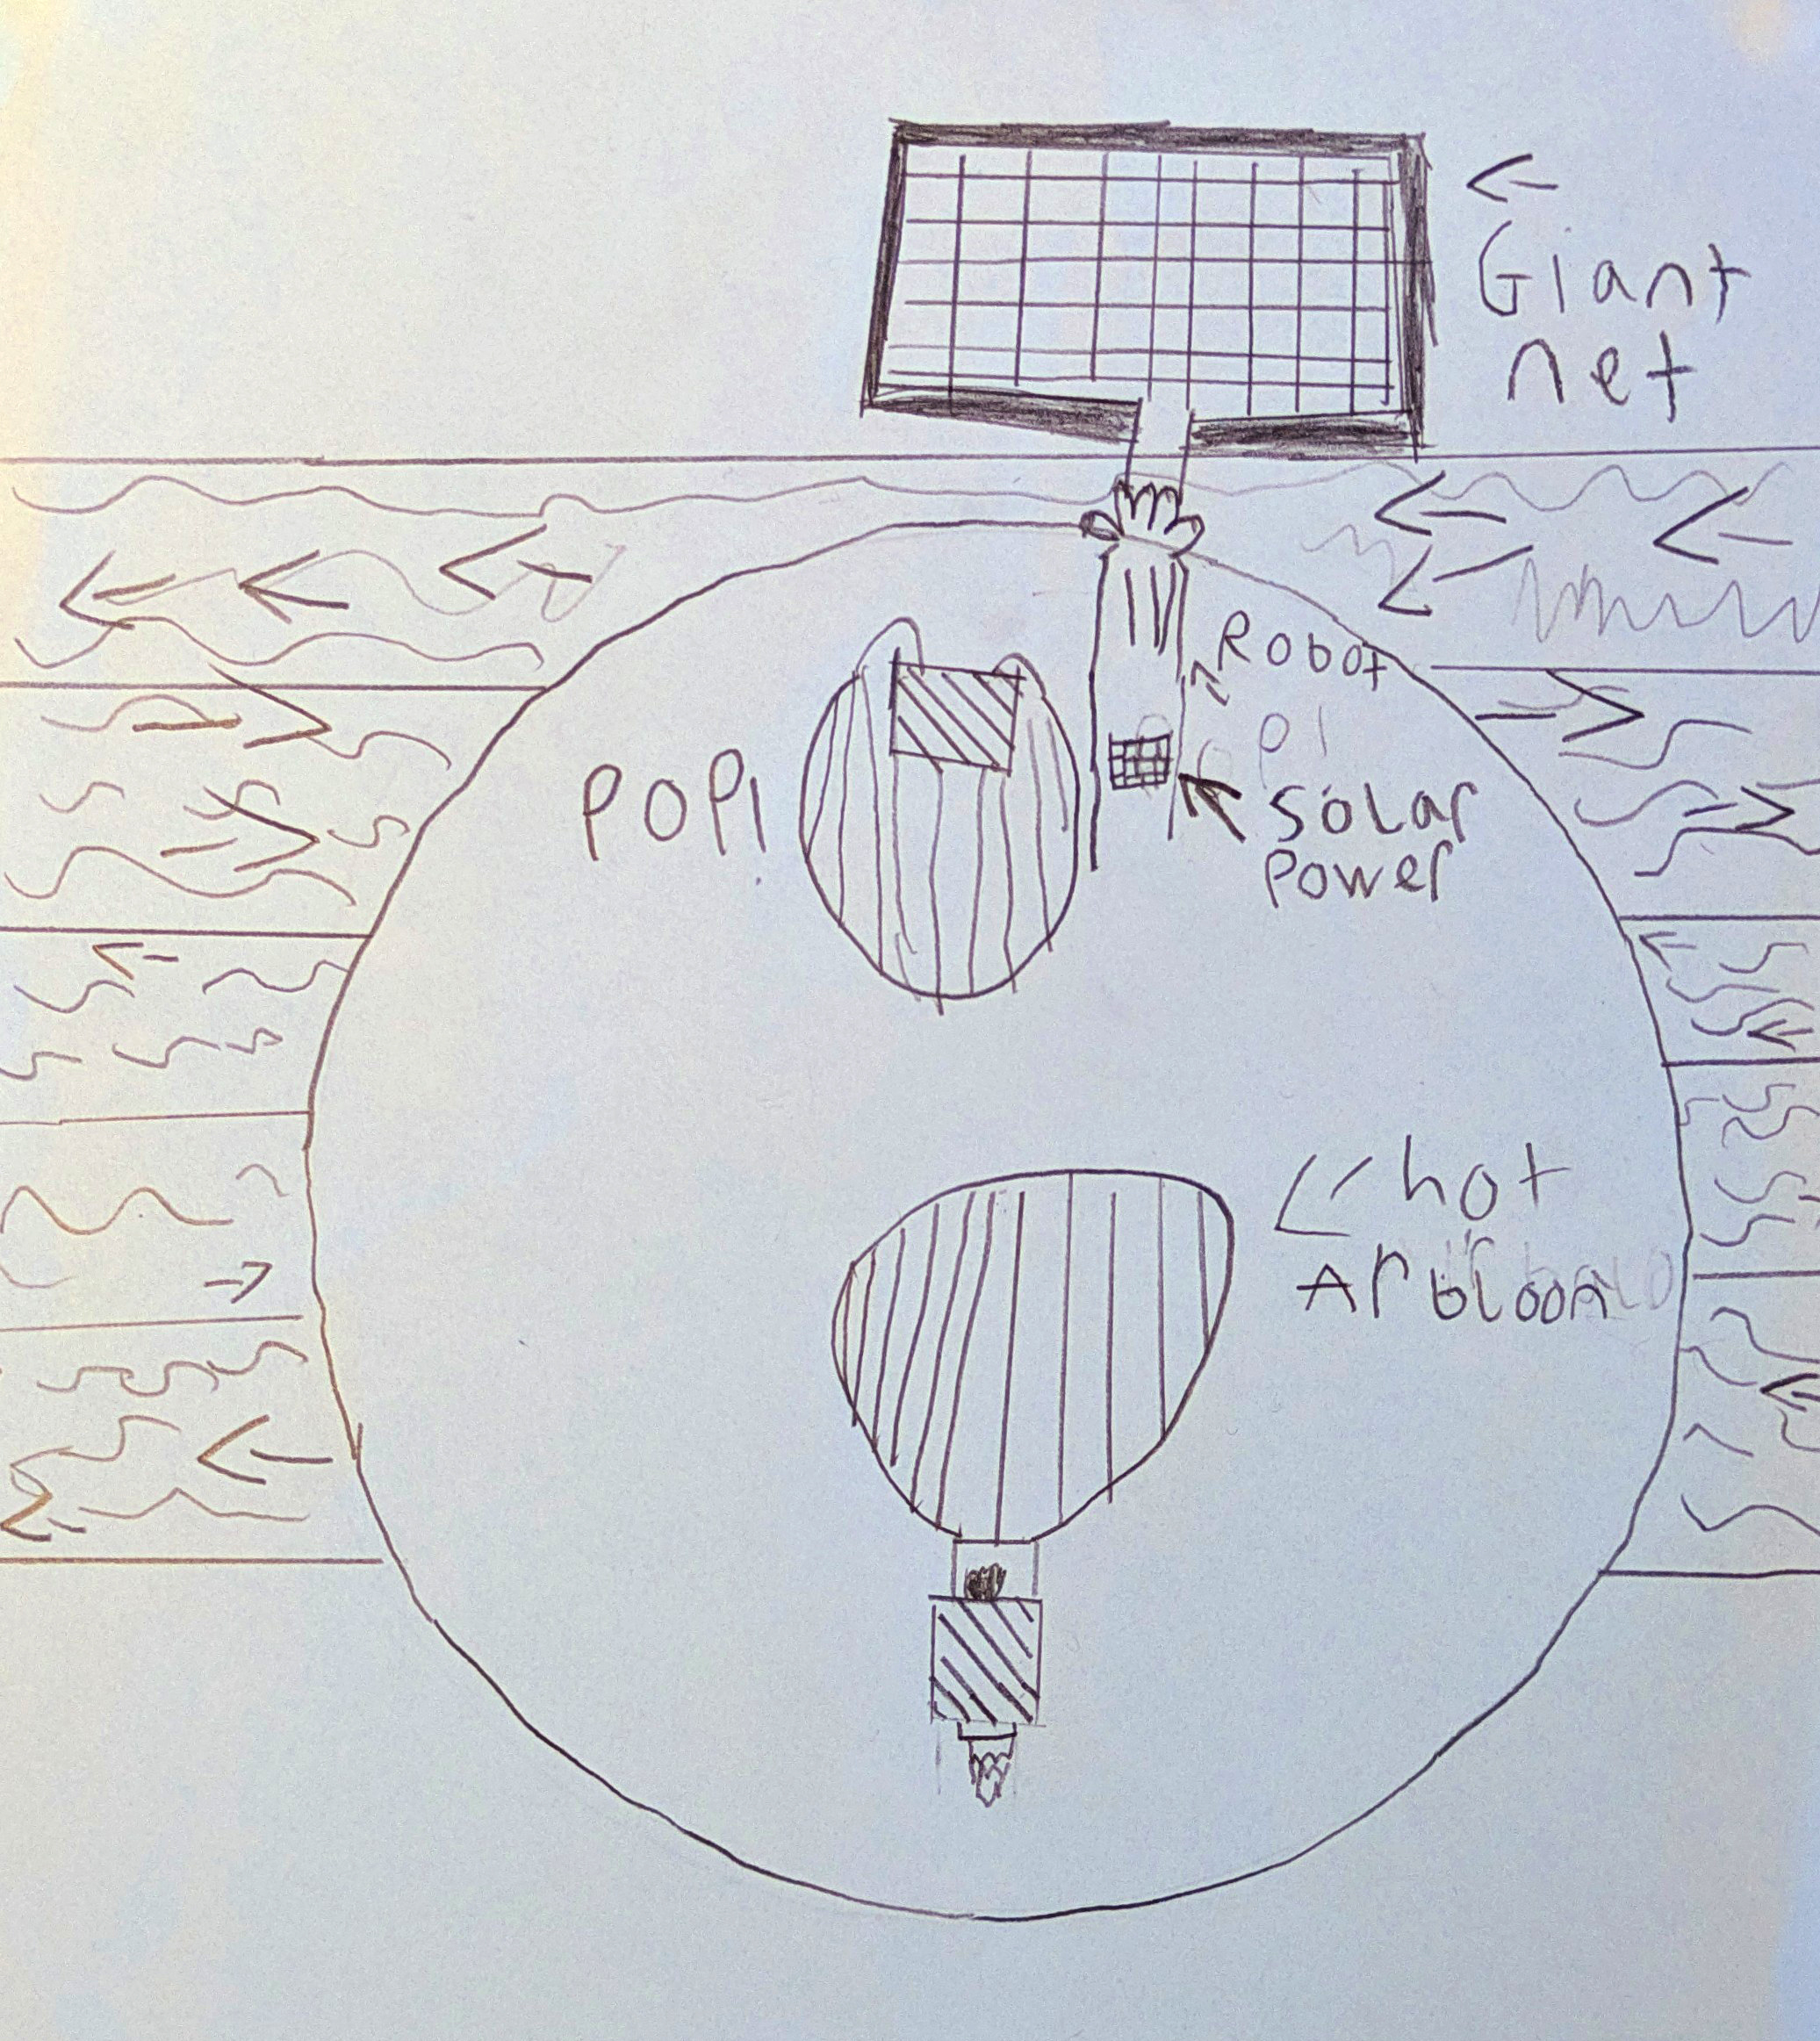 Giant
net
Robot
POPI
Solar
Power
hot
Ar bloon